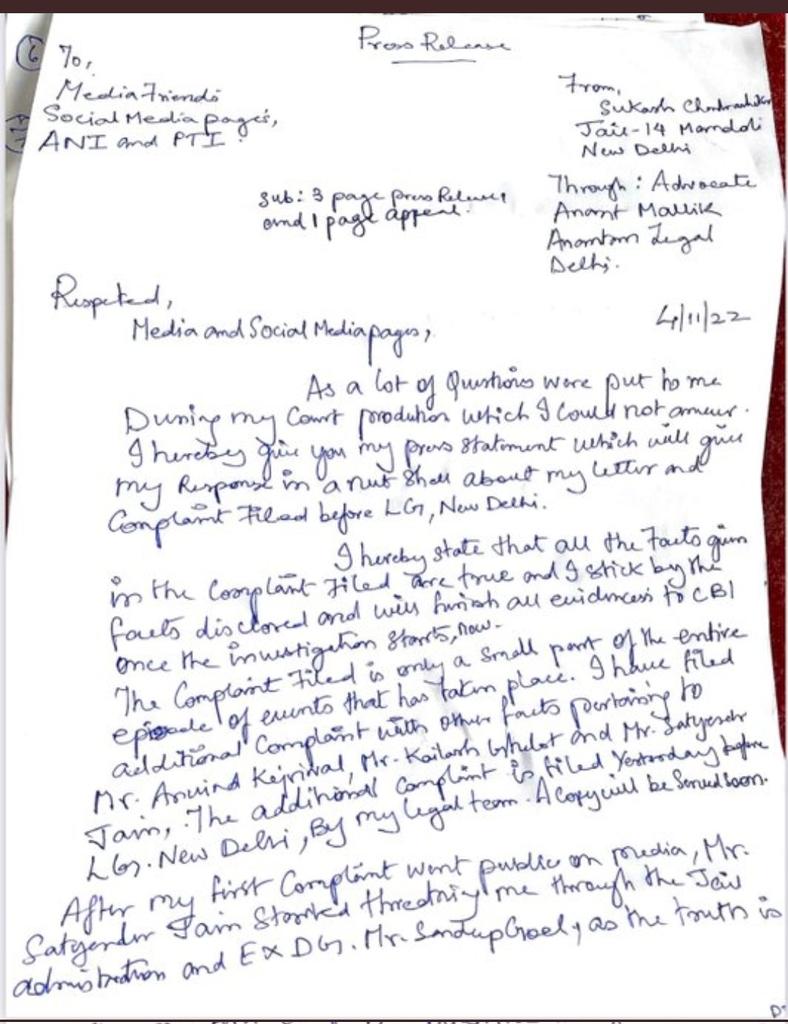 Press Release
To,
Media Friends
Social Media pages,
ANI and PTI.
From,
Sukash Chandrashekar
Jail-14 Mandoli
New Delhi
Through: Advocate
Anant Mallik
Anantam Legal
Delhi.
Sub: 3 page press Release,
and 1 page appeal.
Respeted,
4/11/22
Media and Social Media pages,
As a lot of Questions were put to me
During my Court prodution which I could not answer.
I hereby give you my press statement which will give
my Response in a nut Shell about my letter and
Complaint Filed before LG, New Delhi.
I hereby state that all the Facts given
in the Complaint Filed are true and I stick by the
facts disclosed and will furnish all evidences to CBI
once the investigation starts, now.
The Complaint Filed is only a small part of the entire
episode of events that has taken place. I have filed
additional Complaint with other facts pertaining to
Mr. Arvind Kejriwal, Mr. Kailash Gehlot and Mr. Satyendr
Jain, The additional Complaint is filed Yesterday before
LG. New Delhi, By my legal team. A copy will be Served soon.
After my first Complaint went public on media, Mr.
Satyender Jain Started threatning me through the Jail
adminstration and EX DG. Mr. Sandeep Goel, as the truth is